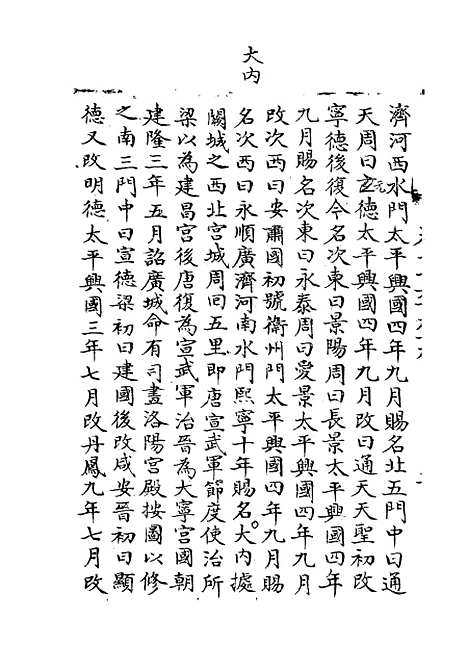 大内
濟河西水門太平興國四年九月賜名北五門中曰通
天周曰玄德太平興國四年九月改曰通天天聖初改
寧德後復今名次東曰景陽周曰長景太平興國四年
九月賜名次東曰永泰周曰愛景太平興國四年九月
改次西曰安肅國初號衛州門太平興國四年九月賜
名次西曰永順廣濟河南水門熙寧十年賜名。大内據
闕城之西北宮城周回五里即唐宣武軍節度使治所
梁以為建昌宮後唐復為宣武軍治晉為大寧宮國朝
建隆三年五月詔廣城命有司畫洛陽宮殿按圖以修
之南三門中曰宣德梁初曰建國後改咸安晉初曰顯
德又改明德太平興國三年七月改丹鳳九年七月改